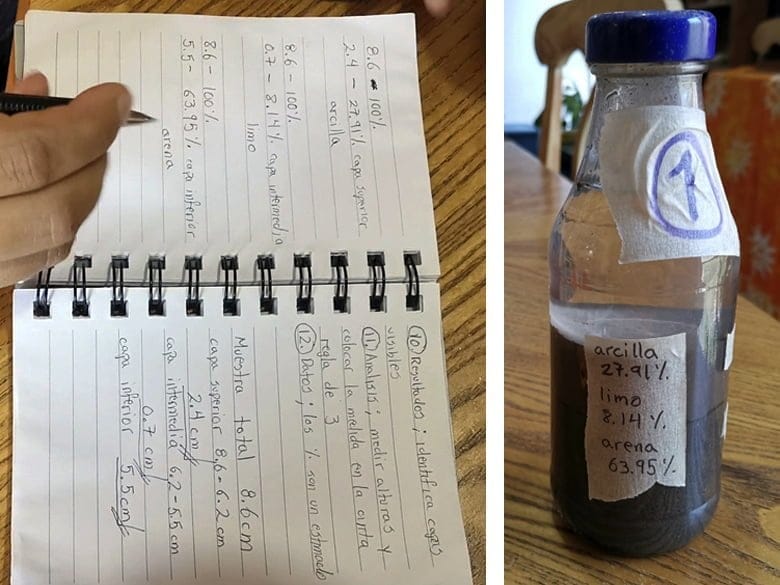 8.6 - 100%
2.4 - 27.91% capa superior
arcilla
8.6 - 100%
0.7 - 8.14% capa intermedia
limo
8.6 - 100%
5.5 - 63.95% capa inferior
arena
10. Resultados; identifica capas
visibles
11. Analisis; medir alturas y
colocar la medida en la cinta
regla de 3
12. Datos; los % son un estimado
Muestra total 8.6cm
capa superior 8.6-6.2cm
2.4cm
capa intermedia 6.2-5.5cm
0.7cm
capa inferior 5.5cm
1
arcilla
27.91%
limo
8.14%
arena
63.95%